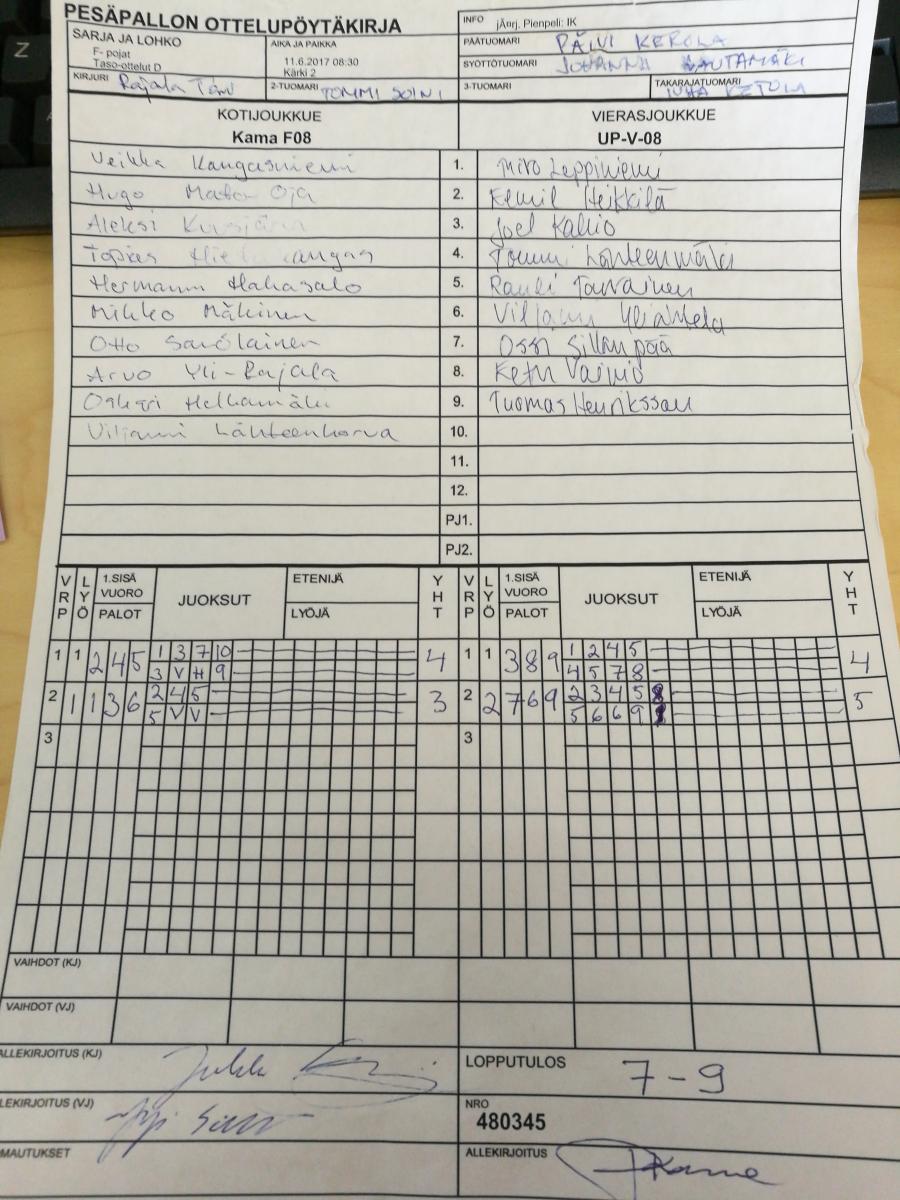 PESÄPALLON OTTELUPÖYTÄKIRJA
INFO jÄnrj, Pienpeli: IK
SARJA JA LOHKO
F- pojat
Taso-ottelut D
AIKA JA PAIKKA
11.6.2017 08:30
Kärki 2
PÄÄTUOMARI PÄIVI KEROLA
SYÖTTÖTUOMARI JOHANNA RAUTAMÄKI
KIRJURI Rajala
2-TUOMARI TOMMI SOINI
3-TUOMARI
TAKARAJATUOMARI JUHA KETOLA
KOTIJOUKKUE
Kama F08
VIERASJOUKKUE
UP-V-08
Veikka Kangasniemi 1. Miro Leppiniemi
Hugo Oja 2. Eemil Heikkilä
Aleksi 3. Joel Kallio
4. Tommi Lähteenmäki
Hermanni Hakasalo 5. Rauli Tarvainen
Mikko Mäkinen 6. Viljami
Otto Savolainen 7. Ossi Sillanpää
Arvo Yli-Rajala 8. Vainio
Oskari 9. Tuomas Henriksson
Viljami Lähteenkorva 10.
11.
12.
PJ1.
PJ2.
VRP LYÖ 1.SISÄ VUORO PALOT JUOKSUT ETENIJÄ LYÖJÄ YHT VRP LYÖ 1.SISÄ VUORO PALOT JUOKSUT ETENIJÄ LYÖJÄ YHT
1 1 2 4 5 1 3 7 10 4 1 1 3 8 9 1 2 4 5 4
3 V H 9 4 5 7 8
2 1 1 3 6 2 4 5 3 2 2 7 6 9 2 3 4 5 8 5
5 V V 5 6 6 9
3 3
VAIHDOT (KJ)
VAIHDOT (VJ)
ALLEKIRJOITUS (KJ) Jukka
LOPPUTULOS 7-9
LEKIRJOITUS (VJ)
NRO
480345
MAUTUKSET
ALLEKIRJOITUS